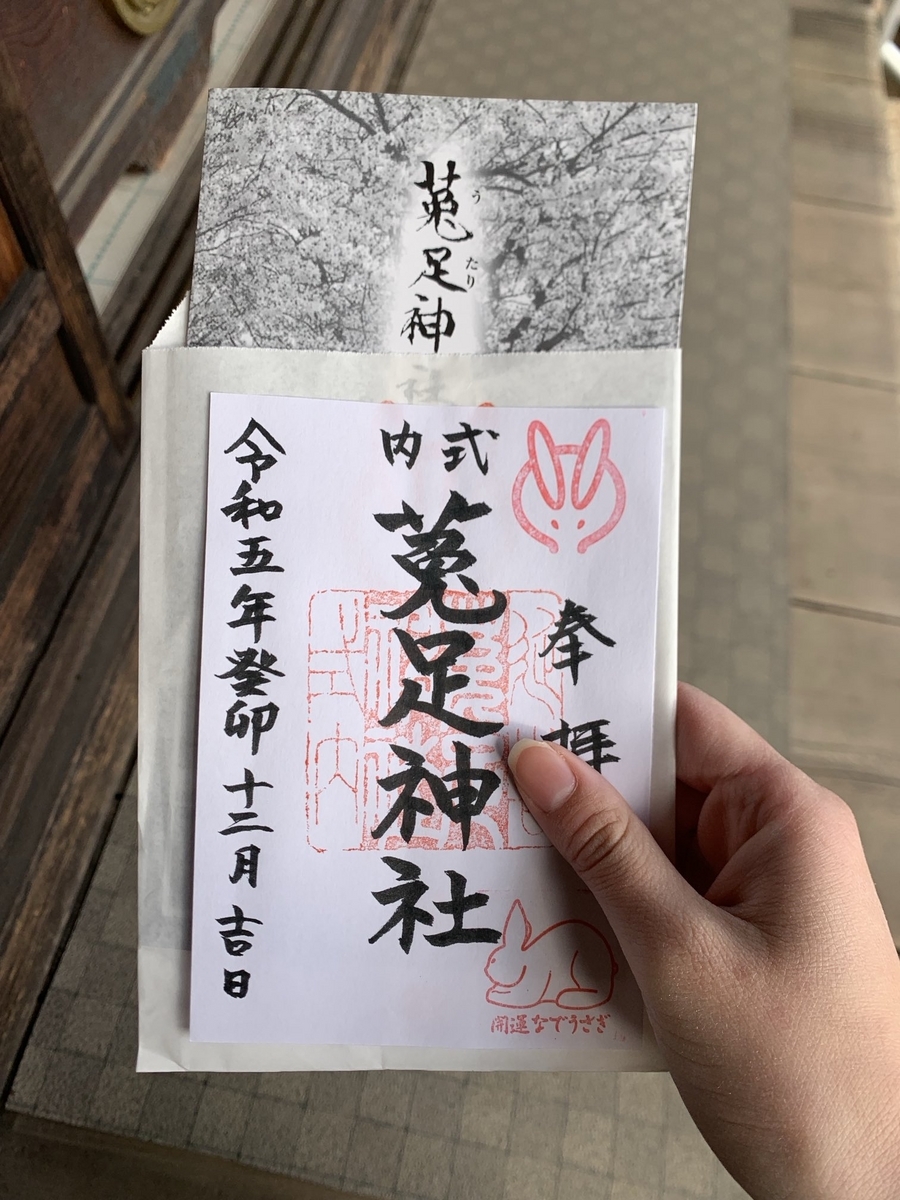 菟足神社
うたり
奉拝
式内
菟足神社
令和五年癸卯十二月吉日
式内
開運なでうさぎ